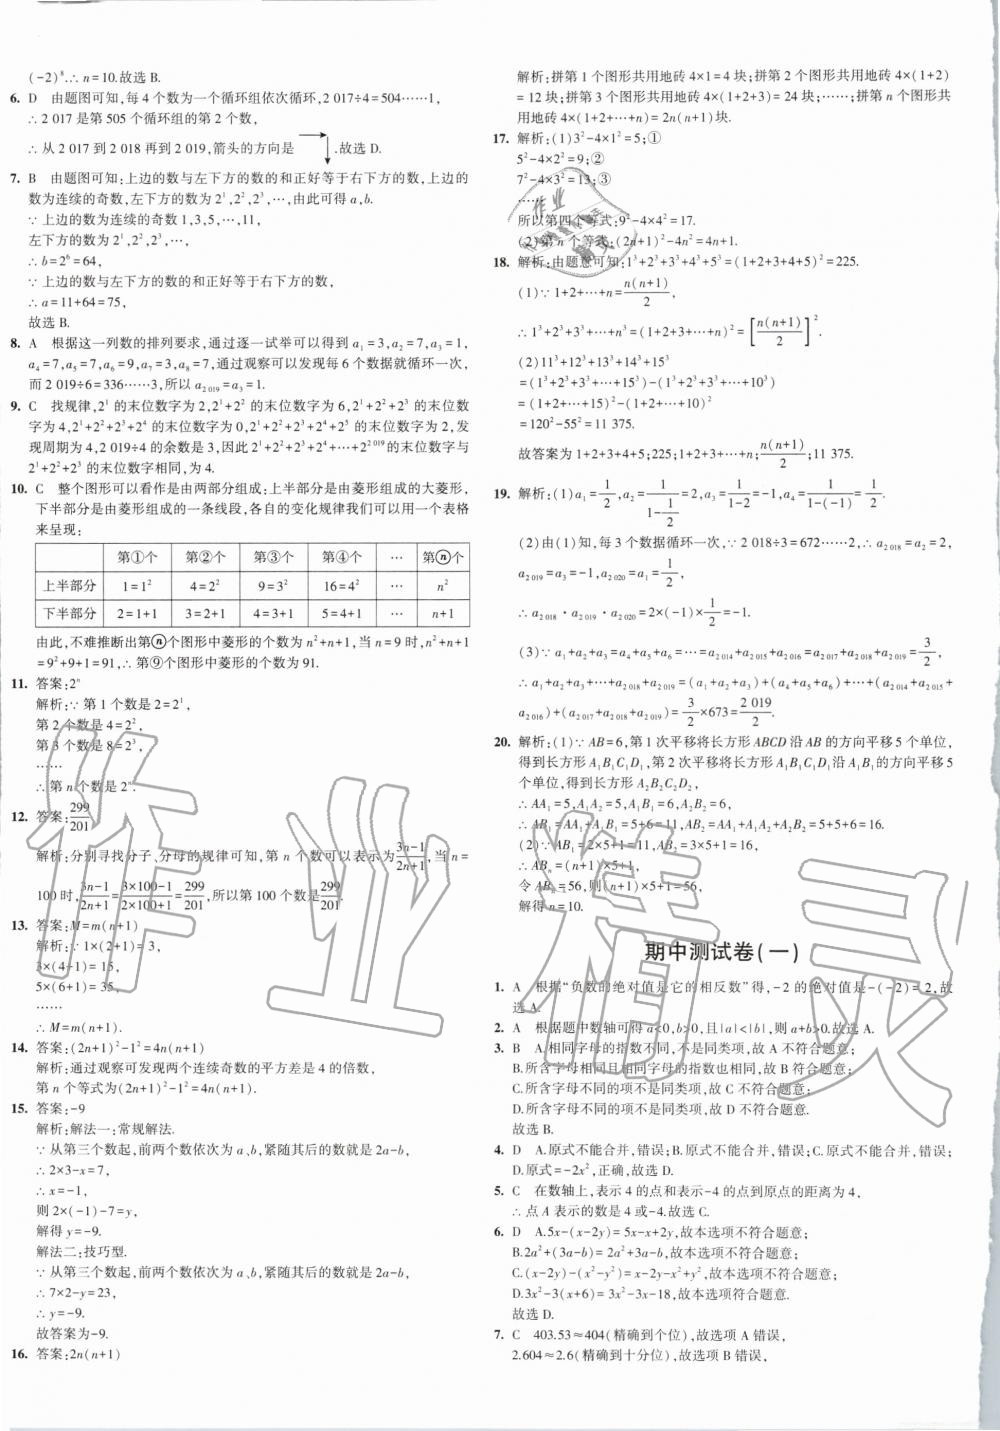 (-2)⁸.∴ n=10.故选 B.
6. D 由题图可知,每 4 个数为一个循环组依次循环,2 017÷4=504……1,
∴ 2 017 是第 505 个循环组的第 2 个数,
∴ 从 2 017 到 2 018 再到 2 019,箭头的方向是 .故选 D.
7. B 由题图可知:上边的数与左下方的数的和正好等于右下方的数,上边的
数为连续的奇数,左下方的数为 2¹,2²,2³,…,由此可得 a,b.
∵ 上边的数为连续的奇数 1,3,5,…,11,
左下方的数为 2¹,2²,2³,…,
∴ b=2⁶=64,
∵ 上边的数与左下方的数的和正好等于右下方的数,
∴ a=11+64=75,
故选 B.
8. A 根据这一列数的排列要求,通过逐一试举可以得到 a₁=3,a₂=7,a₃=1,
a₄=7,a₅=7,a₆=9,a₇=3,a₈=7,通过观察可以发现每 6 个数据就循环一次,
而 2 019÷6=336……3,所以 a₂ ₀₁₉=a₃=1.
9. C 找规律,2¹ 的末位数字为 2,2¹+2² 的末位数字为 6,2¹+2²+2³ 的末位数
字为 4,2¹+2²+2³+2⁴ 的末位数字为 0,2¹+2²+2³+2⁴+2⁵ 的末位数字为 2,发
现周期为 4,2 019÷4 的余数是 3,因此 2¹+2²+2³+2⁴+…+2²⁰¹⁹的末位数字与
2¹+2²+2³ 的末位数字相同,为 4.
10. C 整个图形可以看作是由两部分组成:上半部分是由菱形组成的大菱形,
下半部分是由菱形组成的一条线段,各自的变化规律我们可以用一个表格
来呈现:
第①个 第②个 第③个 第④个 … 第ⓝ个
上半部分 1=1² 4=2² 9=3² 16=4² … n²
下半部分 2=1+1 3=2+1 4=3+1 5=4+1 … n+1
由此,不难推断出第ⓝ个图形中菱形的个数为 n²+n+1,当 n=9 时,n²+n+1
=9²+9+1=91,∴ 第⑨个图形中菱形的个数为 91.
11. 答案:2ⁿ
解析:∵ 第 1 个数是 2=2¹,
第 2 个数是 4=2²,
第 3 个数是 8=2³,
……
∴ 第 n 个数是 2ⁿ.
12. 答案:299/201
解析:分别寻找分子、分母的规律可知,第 n 个数可以表示为(3n-1)/(2n+1),当 n=
100 时,(3n-1)/(2n+1)=(3×100-1)/(2×100+1)=299/201,所以第 100 个数是299/201.
13. 答案:M=m(n+1)
解析:∵ 1×(2+1)=3,
3×(4+1)=15,
5×(6+1)=35,
……
∴ M=m(n+1).
14. 答案:(2n+1)²-1²=4n(n+1)
解析:通过观察可发现两个连续奇数的平方差是 4 的倍数,
第 n 个等式为(2n+1)²-1²=4n(n+1).
15. 答案:-9
解析:解法一:常规解法.
∵ 从第三个数起,前两个数依次为 a、b,紧随其后的数就是 2a-b,
∴ 2×3-x=7,
∴ x=-1,
则 2×(-1)-7=y,
解得 y=-9.
解法二:技巧型.
∵ 从第三个数起,前两个数依次为 a、b,紧随其后的数就是 2a-b,
∴ 7×2-y=23,
∴ y=-9.
故答案为-9.
16. 答案:2n(n+1)
解析:拼第 1 个图形共用地砖 4×1=4 块;拼第 2 个图形共用地砖 4×(1+2)
=12 块;拼第 3 个图形共用地砖 4×(1+2+3)=24 块;……;拼第 n 个图形共
用地砖 4×(1+2+…+n)=2n(n+1)块.
17. 解析:(1)3²-4×1²=5;①
5²-4×2²=9;②
7²-4×3²=13;③
……
所以第四个等式:9²-4×4²=17.
(2)第 n 个等式:(2n+1)²-4n²=4n+1.
18. 解析:由题意可知;1³+2³+3³+4³+5³=(1+2+3+4+5)²=225.
(1)∵ 1+2+…+n=n(n+1)/2,
∴ 1³+2³+3³+…+n³=(1+2+3+…+n)²=[n(n+1)/2]².
(2)11³+12³+13³+14³+15³
=(1³+2³+3³+…+15³)-(1³+2³+3³+…+10³)
=(1+2+…+15)²-(1+2+…+10)²
=120²-55²=11 375.
故答案为 1+2+3+4+5;225;1+2+3+…+n;n(n+1)/2;11 375.
19. 解析:(1)a₁=1/2,a₂=1/(1-1/2)=2,a₃=1/(1-2)=-1,a₄=1/(1-(-1))=1/2.
(2)由(1)知,每 3 个数据循环一次,∵ 2 018÷3=672……2,∴ a₂ ₀₁₈=a₂=2,
a₂ ₀₁₉=a₃=-1,a₂ ₀₂₀=a₁=1/2,
∴ a₂ ₀₁₈·a₂ ₀₁₉·a₂ ₀₂₀=2×(-1)×1/2=-1.
(3)∵ a₁+a₂+a₃=a₄+a₅+a₆=…=a₂ ₀₁₄+a₂ ₀₁₅+a₂ ₀₁₆=a₂ ₀₁₇+a₂ ₀₁₈+a₂ ₀₁₉=3/2,
∴ a₁+a₂+a₃+…+a₂ ₀₁₈+a₂ ₀₁₉=(a₁+a₂+a₃)+(a₄+a₅+a₆)+…+(a₂ ₀₁₄+a₂ ₀₁₅+
a₂ ₀₁₆)+(a₂ ₀₁₇+a₂ ₀₁₈+a₂ ₀₁₉)=3/2×673=2 019/2.
20. 解析:(1)∵ AB=6,第 1 次平移将长方形 ABCD 沿 AB 的方向平移 5 个单位,
得到长方形 A₁B₁C₁D₁,第 2 次平移将长方形 A₁B₁C₁D₁沿 A₁B₁的方向平移 5
个单位,得到长方形 A₂B₂C₂D₂,
∴ AA₁=5,A₁A₂=5,A₁B₁=6,A₂B₂=6,
∴ AB₁=AA₁+A₁B₁=5+6=11,AB₂=AA₁+A₁A₂+A₂B₂=5+5+6=16.
(2)∵ AB₁=2×5+1=11,AB₂=3×5+1=16,
∴ ABₙ=(n+1)×5+1,
令 ABₙ=56,则(n+1)×5+1=56,
解得 n=10.
期中测试卷(一)
1. A 根据“负数的绝对值是它的相反数”得,-2 的绝对值是-(-2)=2,故
选 A.
2. A 根据题中数轴可得 a<0,b>0,且|a|<|b|,则 a+b>0.故选 A.
3. B A.相同字母的指数不同,不是同类项,故 A 不符合题意;
B.所含字母相同且相同字母的指数也相同,故 B 符合题意;
C.所含字母不同的项不是同类项,故 C 不符合题意;
D.所含字母不同的项不是同类项,故 D 不符合题意.
故选 B.
4. D A.原式不能合并,错误;B.原式不能合并,错误;C.原式不能合并,错误;
D.原式=-2x²,正确,故选 D.
5. C 在数轴上,表示 4 的点和表示-4 的点到原点的距离为 4,
∴ 点 A 表示的数是 4 或-4.故选 C.
6. D A.5x-(x-2y)=5x-x+2y,故本选项不符合题意;
B.2a²+(3a-b)=2a²+3a-b,故本选项不符合题意;
C.(x-2y)-(x²-y²)=x-2y-x²+y²,故本选项不符合题意;
D.3x²-3(x+6)=3x²-3x-18,故本选项符合题意.
故选 D.
7. C 403.53≈404(精确到个位),故选项 A 错误,
2.604≈2.6(精确到十分位),故选项 B 错误,
作业精灵